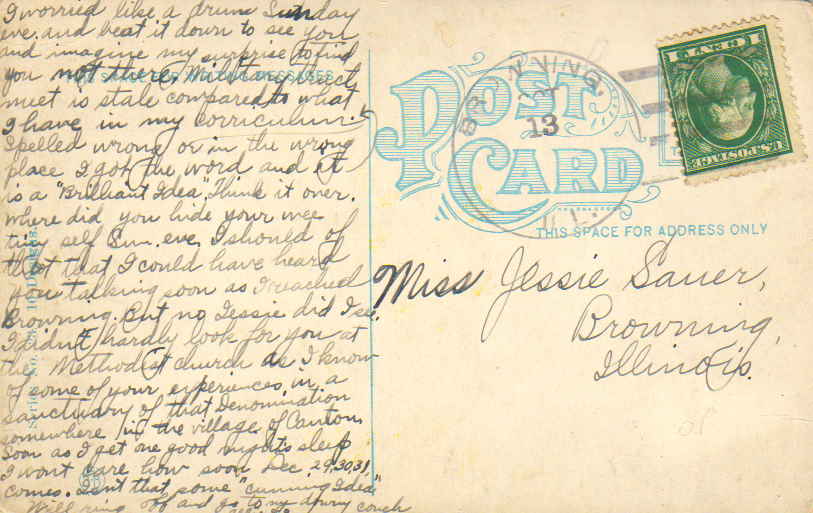 I worried like a drum Sunday
eve. and beat it down to see you
and imagine my surprise to find
you not there. Milt resurrect
meet is stale compared to what
I have in my corriculum.
Spelled wrong or in the wrong
place I got the word and it
is a "Brilliant Idea". Think it over.
Where did you hide your wee
tiny self Sun. eve. I should of
thot that I could have heard
you talking soon as I reached
Browning. But no Jessie did I see.
I didn't hardly look for you at
the Methodist church as I know
of some of your experiences in a
sanctuary of that Denomination
somewhere in the village of Canton.
Soon as I get one good night's sleep
I wont care how soon Dec 29, 30, 31,
comes. Isn't that some "cunning Idea"
Will ring off and go to my downy couch
SPACE FOR MESSAGES
Series No.
POST
CARD
THIS SPACE FOR ADDRESS ONLY
BROWNING,
13
ILL.
1 CENT 1
U.S. POSTAGE
Miss Jessie Sauer,
Browning,
Illinois.